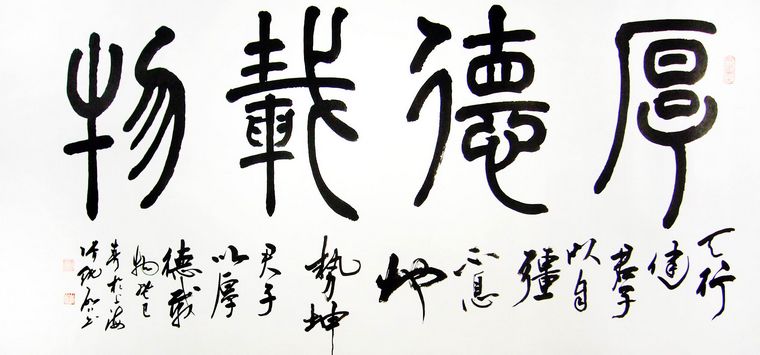 厚德載物
天行
健
君子
以自
彊
不息
地
勢坤
君子
以厚
德載
物
於上海